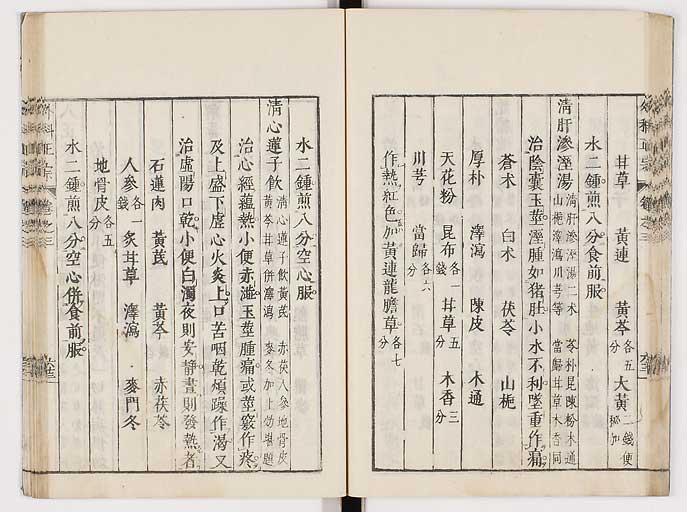 甘草 黃連 黃芩各五分 大黃二錢便秘加
水二鍾煎八分食前服
清肝滲溼湯 清肝滲溼湯二朮 苓朴昆陳粉木通 山梔澤瀉川芎等 當歸甘草木香同
治陰囊玉莖溼腫如猪肚小水不利墜重作痛
蒼朮 白朮 茯苓 山梔
厚朴 澤瀉 陳皮 木通
天花粉 昆布各一錢 甘草五分 木香三分
川芎 當歸各六分
作熱紅色加黃連龍膽草各七分
水二鍾煎八分空心服
清心蓮子飲 清心蓮子飲黃茋 赤茯人參地骨皮 黃芩甘草併澤瀉 麥冬加上効堪題
治心經蘊熱小便赤澁玉莖腫痛或莖竅作疼
及上盛下虛心火炎上口苦咽乾煩躁作渴又
治虛陽口乾小便白濁夜則安靜晝則發熱者
石蓮肉 黃茋 黃芩 赤茯苓
人參各一錢 炙甘草 澤瀉 麥門冬
地骨皮各五分
水二鍾煎八分空心併食前服